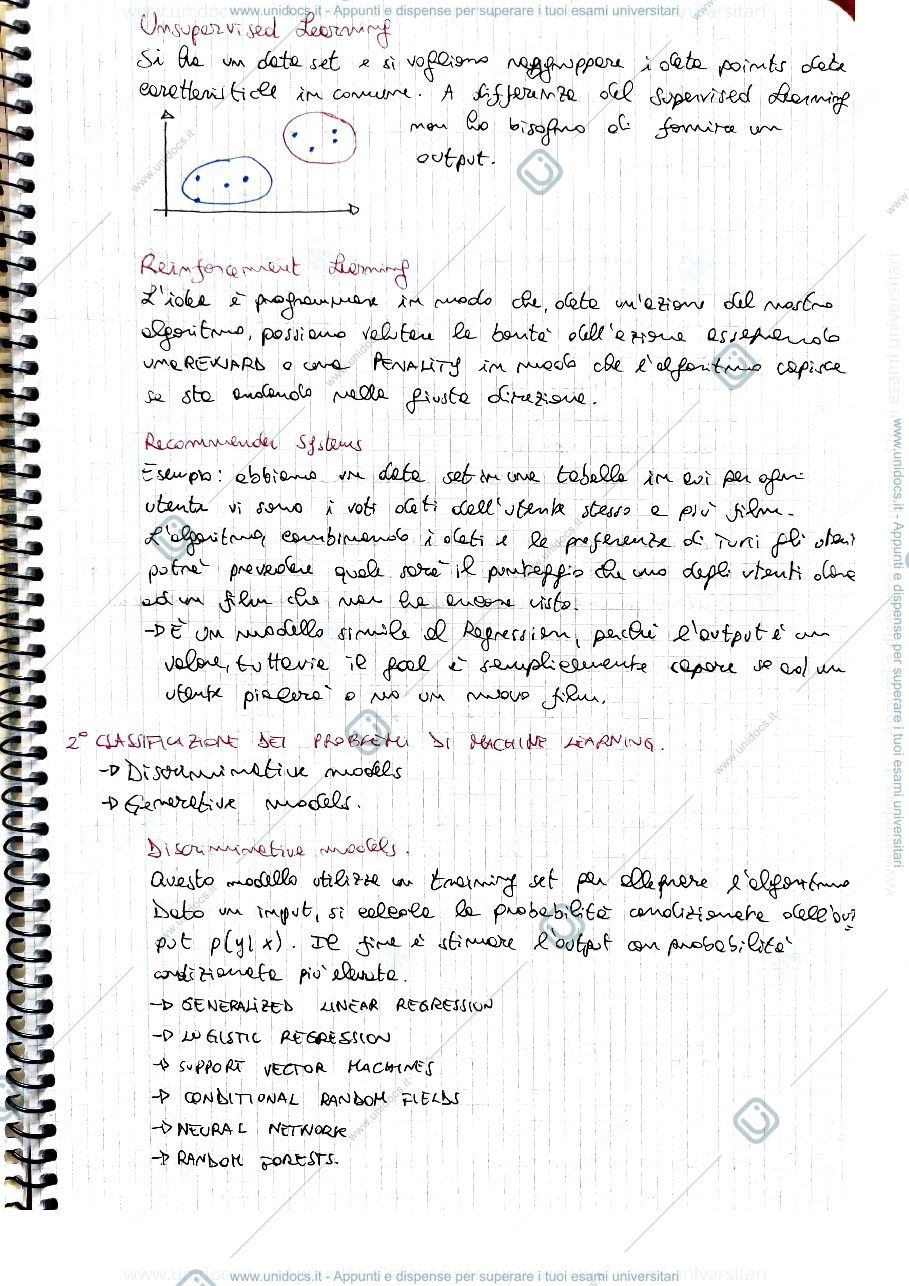 www.unidocs.it - Appunti e dispense per superare i tuoi esami universitari
Unsupervised Learning
Si ha un data set e si vogliono raggruppare i data points date
caratteristiche in comune. A differenza del Supervised Learning
non ho bisogno di fornire un
output.
Reinforcement Learning
L'idea è programmare in modo che, data un'azione del nostro
algoritmo, possiamo valutare la bontà dell'azione assegnando
una REWARD o una PENALITY in modo che l'algoritmo capisca
se sta andando nella giusta direzione.
Recommender Systems
Esempio: abbiamo un data set in una tabella in cui per ogni
utente vi sono i voti dati dall'utente stesso a più film.
L'algoritmo, combinando i dati e le preferenze di TUTTI gli utenti
potrà prevedere quale sarà il punteggio che uno degli utenti darà
ad un film che non ha ancora visto.
→ È un modello simile al Regression, perché l'output è un
valore, tuttavia il goal è semplicemente capire se ad un
utente piacerà o no un nuovo film.
2° CLASSIFICAZIONE DEI PROBLEMI DI MACHINE LEARNING.
→ Discriminative models
→ Generative models.
Discriminative models.
Questo modello utilizza un training set per allenare l'algoritmo
Dato un input, si calcola la probabilità condizionata dell'out
put p(y|x). Il fine è stimare l'output con probabilità
condizionata più elevata.
→ GENERALIZED LINEAR REGRESSION
→ LOGISTIC REGRESSION
→ SUPPORT VECTOR MACHINES
→ CONDITIONAL RANDOM FIELDS
→ NEURAL NETWORK
→ RANDOM FORESTS.
www.unidocs.it - Appunti e dispense per superare i tuoi esami universitari
www.unidocs.it - Appunti e dispense per superare i tuoi esami universitari